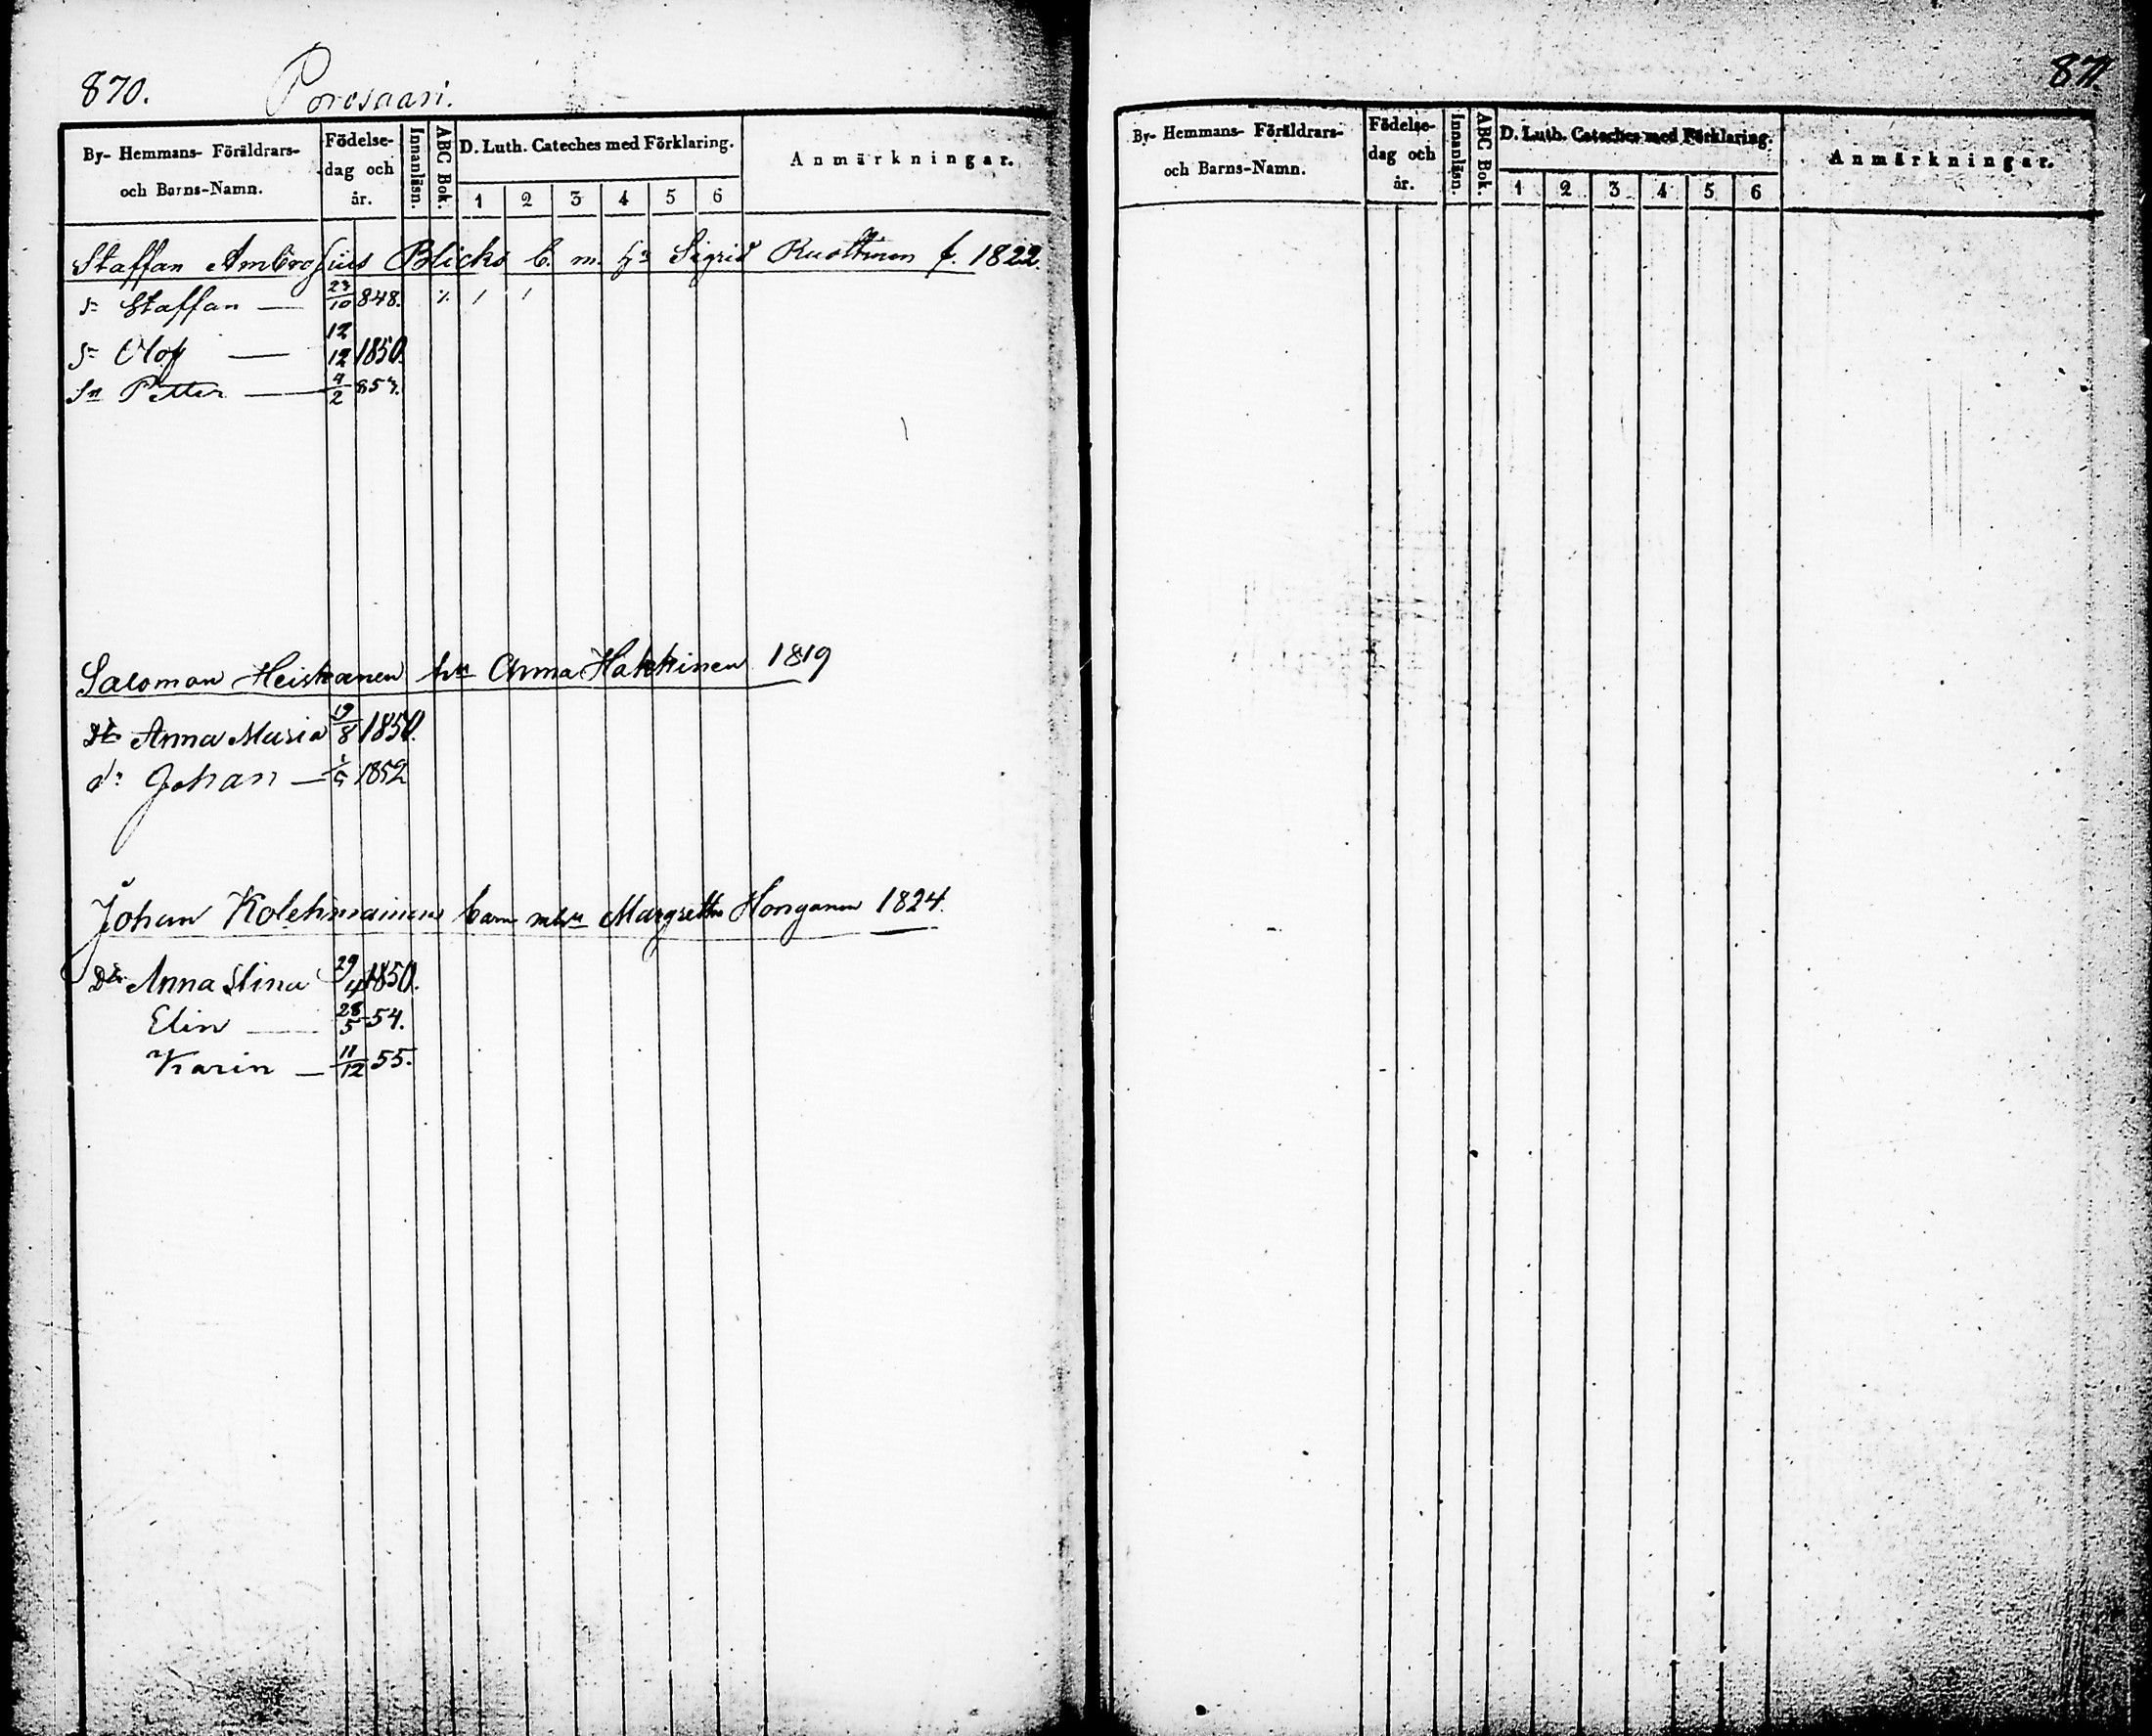 870. Porosaari.
By- Hemmans- Föräldrars- och Barns-Namn.
Födelse- dag och år.
Innanläsn.
ABC Bok.
D. Luth. Cateches med Förklaring.
1 2 3 4 5 6
Anmärkningar.
Staffan Ambrosius Blicks b. m. hu Sigrid f. 1822.
Sn Staffan — 23/10 848.
Sn Olof — 12/12 1850.
Sn Petter — 4/2 857.
Salomon Heiskanen hu Anna Hakkinen 1819
Dr Anna Maria 19/8 1850.
Johan — 1852
Johan Kolehmainens barn m hu Margretha Honganen 1824.
Dr Anna Stina 29/4 1850.
Elin — 28/5 54.
Karin — 11/12 55.
871.
By- Hemmans- Föräldrars- och Barns-Namn.
Födelse- dag och år.
Innanläsn.
ABC Bok.
D. Luth. Cateches med Förklaring.
1 2 3 4 5 6
Anmärkningar.